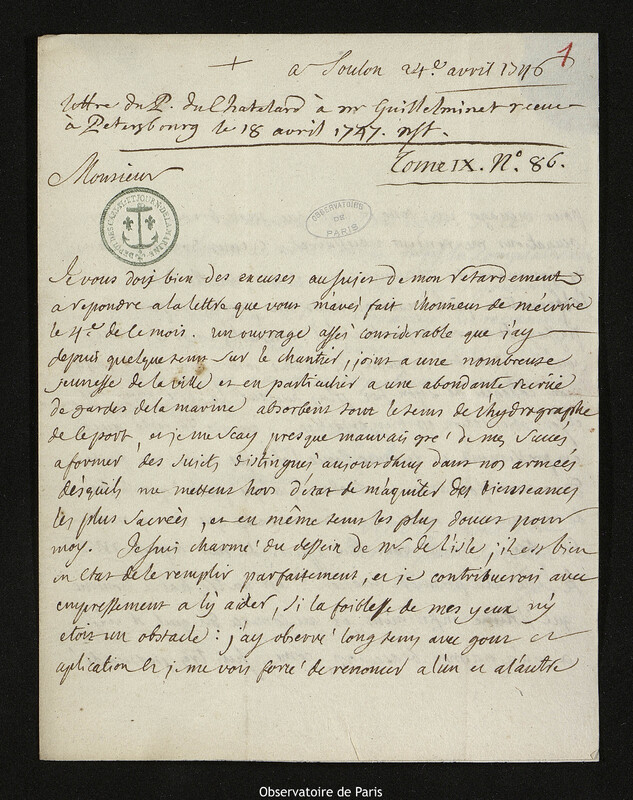 1
+
a Toulon 24.e avril 1746
lettre du P. du Chatelard à mr Guillelminet receue
à Petersbourg le 18 avril 1747. nst.
Tome IX. N.° 86.
Monsieur
OBSERVATOIRE DE PARIS
Je vous dois bien des excuses au sujet de mon retardement
a repondre a la lettre que vous m'avés fait lhonneur de m'écrire
le 4.e de le mois. un ouvrage assés considerable que j'ay
depuis quelque tems sur le chantier, joint a une nombreuse
jeunesse de la ville et en particulier a une abondante recrüe
de gardes de la marine absorbent tout le tems de l'hydrographe
de le port, et je me scay presque mauvais gré de mes succes
a former des sujets distingués aujourdhuy dans nos armées
dès qu'ils me mettent hors d'état de m'aquiter des bienseances
les plus sacrées, et en même tems les plus douces pour
moy. Je suis charmé du dessein de mr. de l'isle; il est bien
en état de le remplir parfaitement, et je contribuerois avec
empressement a l'y aider, si la foiblesse de mes yeux n'y
etoit un obstacle: j'ay observé long tems avec gout et
application & je me vois forcé de renoncer a l'un et a l'autre
Observatoire de Paris